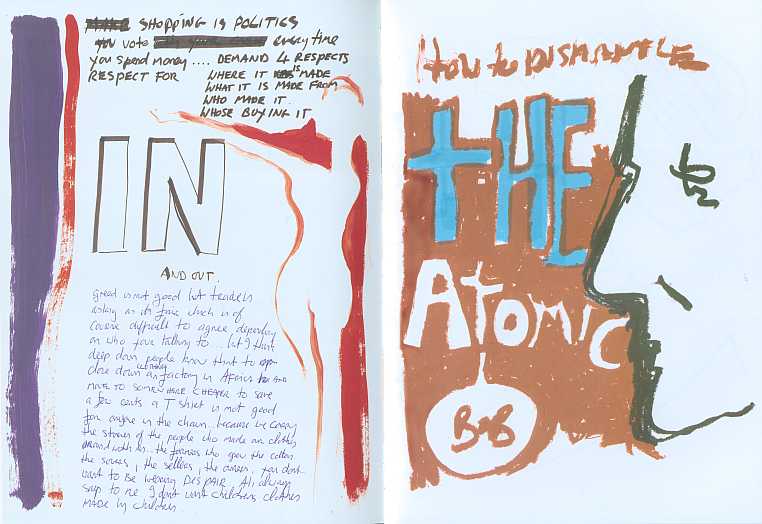 SHOPPING IS POLITICS
you vote every time
you spend money .... DEMAND 4 RESPECTS
RESPECT FOR WHERE IT IS MADE
WHAT IT IS MADE FROM
WHO MADE IT
WHOSE BUYING IT
IN
AND OUT.
Greed is not good but trade is
as long as its fair which is of
course difficult to agree depending
on who your talking to ... but I think
deep down people know that to
close down a factory in AFRICA
move to SOMEWHERE CHEAPER to save
a few cents a T shirt is not good
for anyone in the chain.. because we carry
the stories of the people who made our clothes
around with us... the farmers who grew the cotton
the sewers, the sellers, the owners. you dont
want to BE wearing DESPAIR. Ali always
says to me I dont want childrens clothes
MADE by children.
How to DISMANTLE
THE
Atomic
BoB